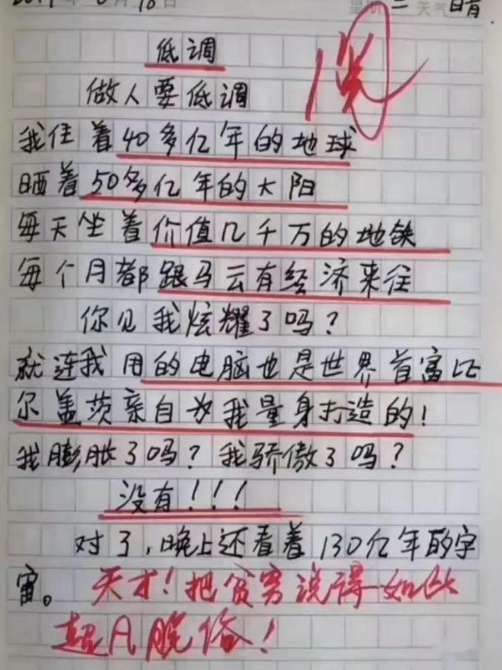 星期三 天气 晴
低调
做人要低调
我住着40多亿年的地球
晒着50多亿年的大阳
每天坐着价值几千万的地铁
每个月都跟马云有经济来往
你见我炫耀了吗?
就连我用的电脑也是世界首富比
尔盖茨亲自为我量身打造的!
我膨胀了吗?我骄傲了吗?
没有!!!
对了,晚上还看着130亿年的宇
宙。天才!把贫穷说得如此
超凡脱俗!